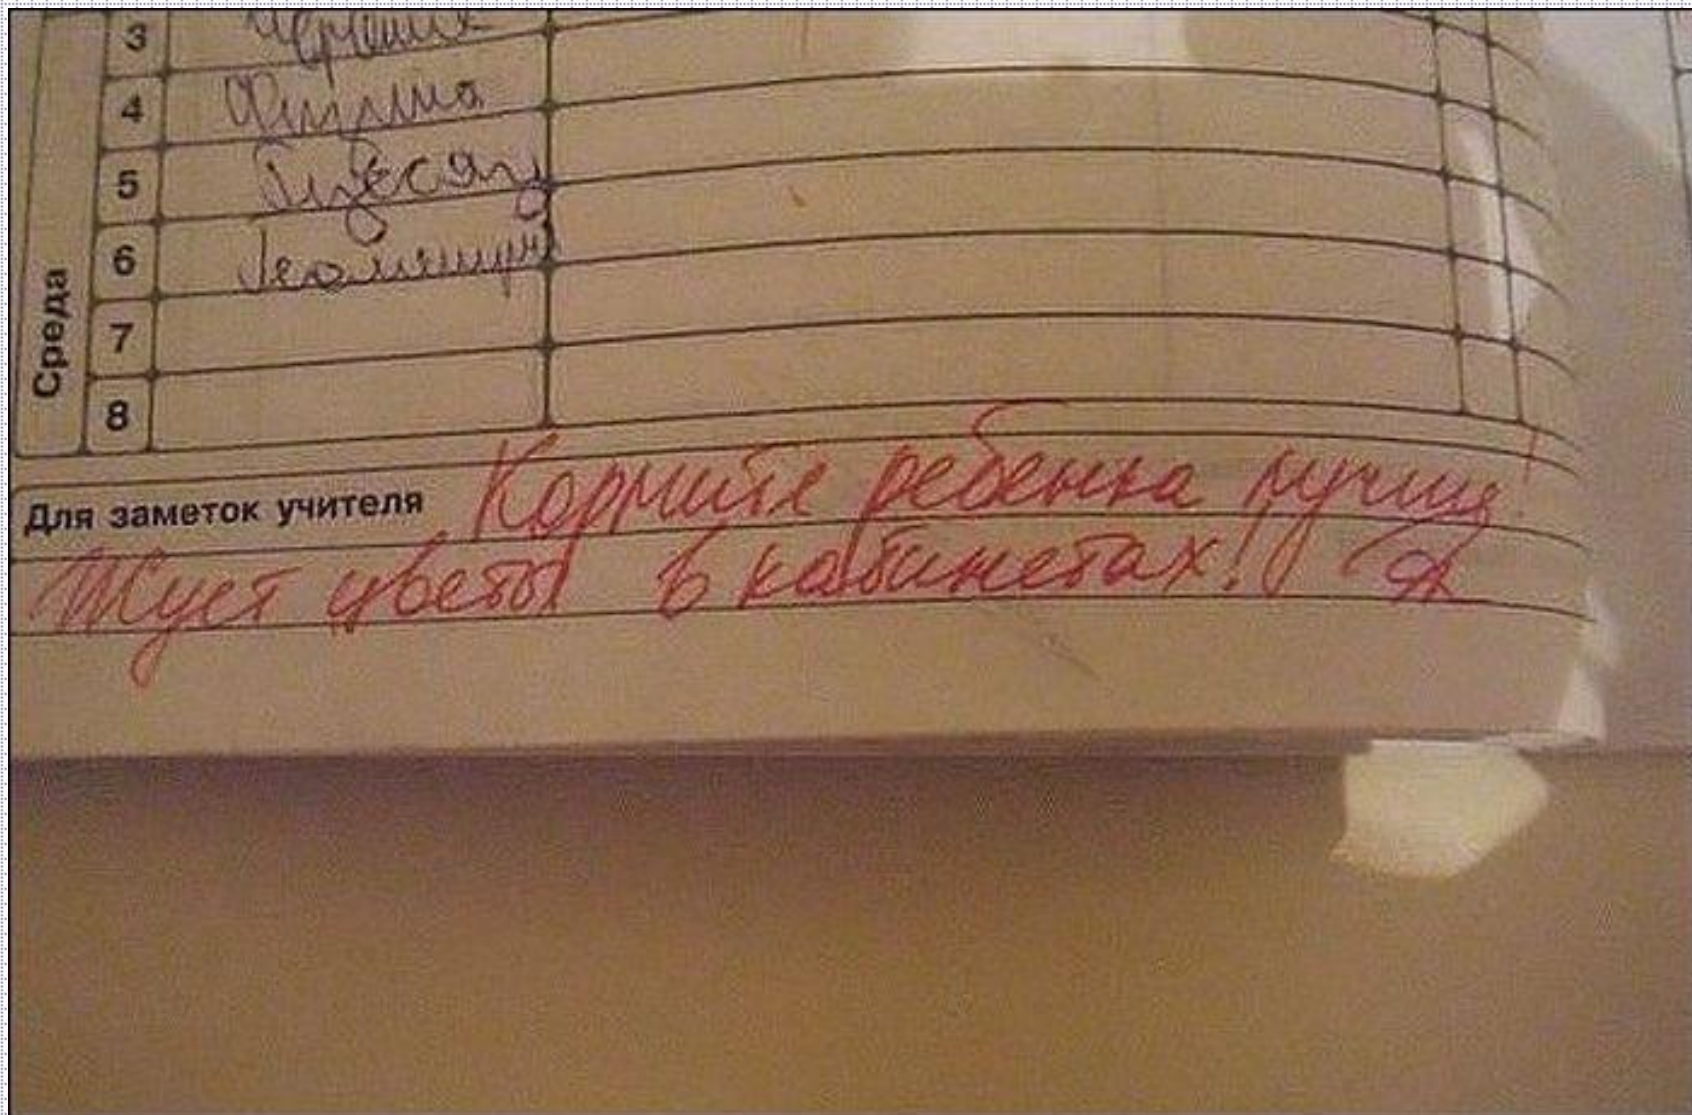 3 Черчение
4 Физика
5 Русск яз
6 Геометрия
7
8
Среда
Для заметок учителя Кормите ребенка лучше!
Жует цветы в кабинетах!